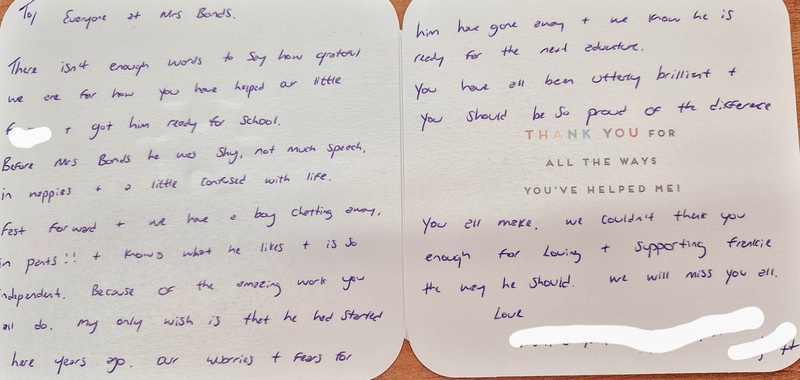 To/ Everyone at Mrs Bonds.
There isn't enough words to say how grateful
we are for how you have helped our little
+ got him ready for school.
Before Mrs Bonds he was shy, not much speech,
in nappies + a little confused with life.
Fast forward + we have a boy chatting away,
in pants!! + knows what he likes + is so
independent. Because of the amazing work you
all do. My only wish is that he had started
here years ago. Our worries + fears for
him have gone away + we know he is
ready for the next adventure.
You have all been utterly brilliant +
you should be so proud of the difference
THANK YOU FOR
ALL THE WAYS
YOU'VE HELPED ME!
You all make. We couldn't thank you
enough for Loving + supporting Frankie
the way he should. We will miss you all.
Love